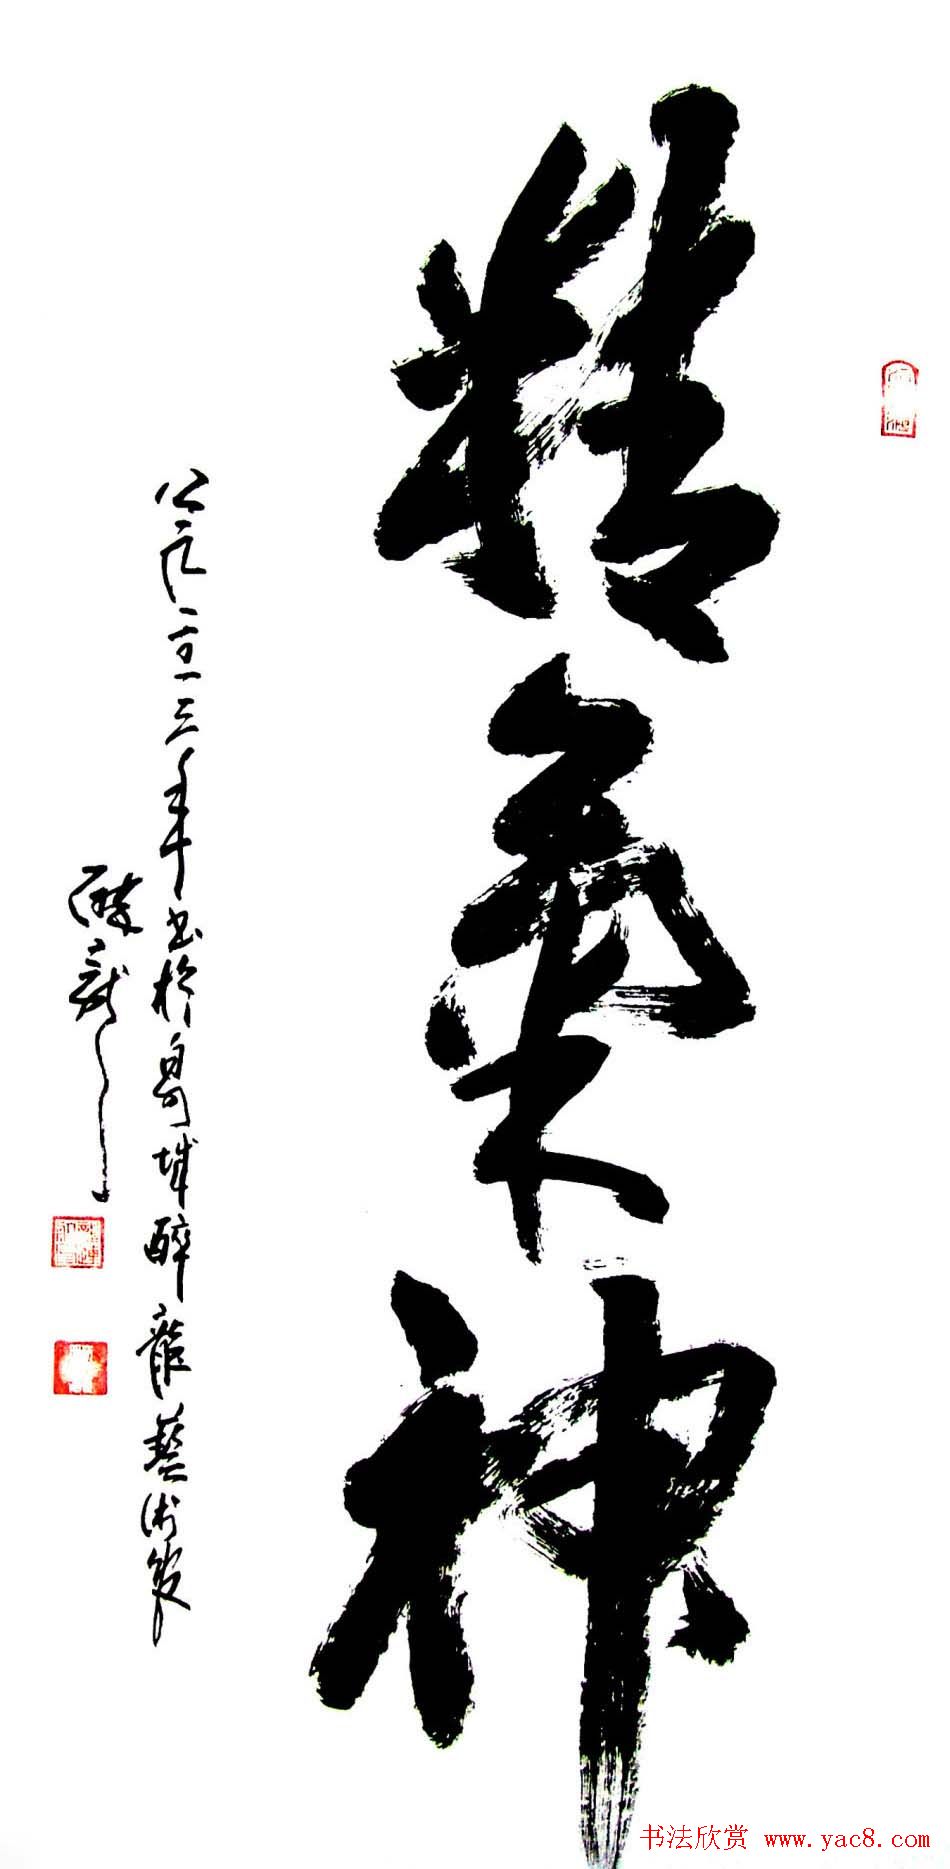 精氣神
公元二〇一三年书於易城醉龍藝術館
書法欣赏 www.yac8.com